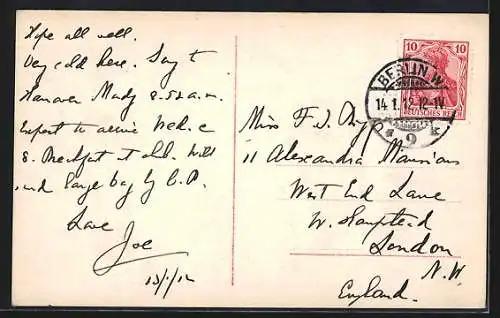 Hope all well.
Very cold here. Say t
Hanover Mndy 8.52 a.m.
Expect to arrive Wed. c
8. Breakfast at old. Will
send large bag by C.P.
Love
Joe
13/1/12
10 10
DEUTSCHES REICH
BERLIN W.
14.1.12.12-1V.
* 9 *
Miss F. J.
11 Alexandra Mansions
West End Lane
W. Hampstead
London
N.W.
England.